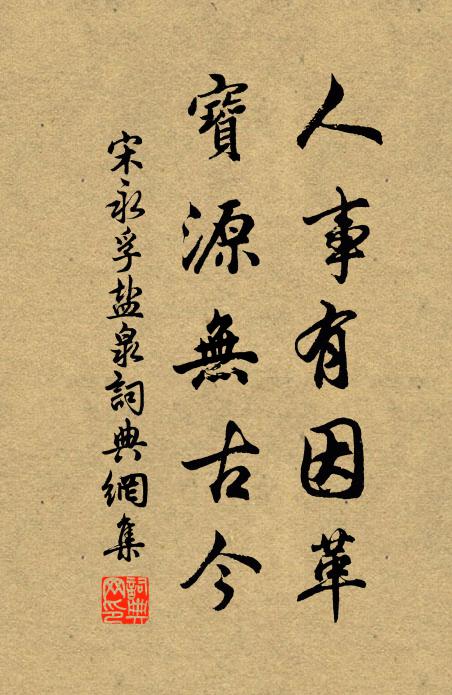 人事有因革
寶源無古今
宋永孚盐泉詞典網集
詞典网印